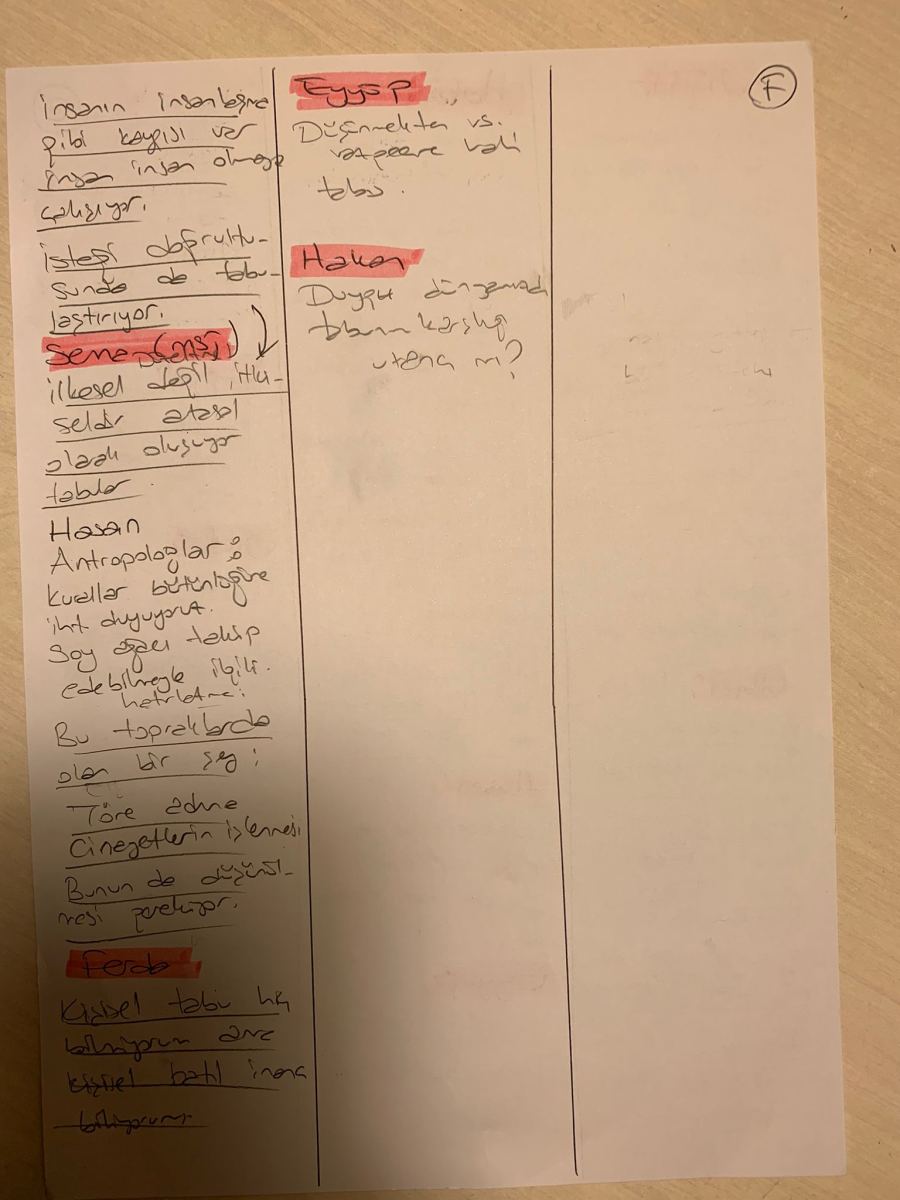 İnsanın insanlaşma
gibi kaygısı var
insan insan olmaya
çalışıyor.
İsteği doğrultu-
sunda da tabu-
laştırıyor.
Sema
ilkesel değil, itki-
seldir atasal
olarak oluşuyor
tabular
Hasan
Antropologlar:
kurallar bütünlüğüne
iht duyuyorut.
Soy ağacı takip
edebilmeyle ilgili.
hatırlatma:
Bu topraklarda
olan bir şey:
Töre adına
Cinayetlerin işlenmesi
Bunun da düşünül-
mesi gerekiyor.
Ferda
Kişisel tabu hiç
bilmiyorum ama
kişisel batıl inanç
biliyorum
Eyyüp
Düşünmekten vs.
tabu.
Hakan
Duygu dünyamda
tabunun karşılığı
utanç mı?
F